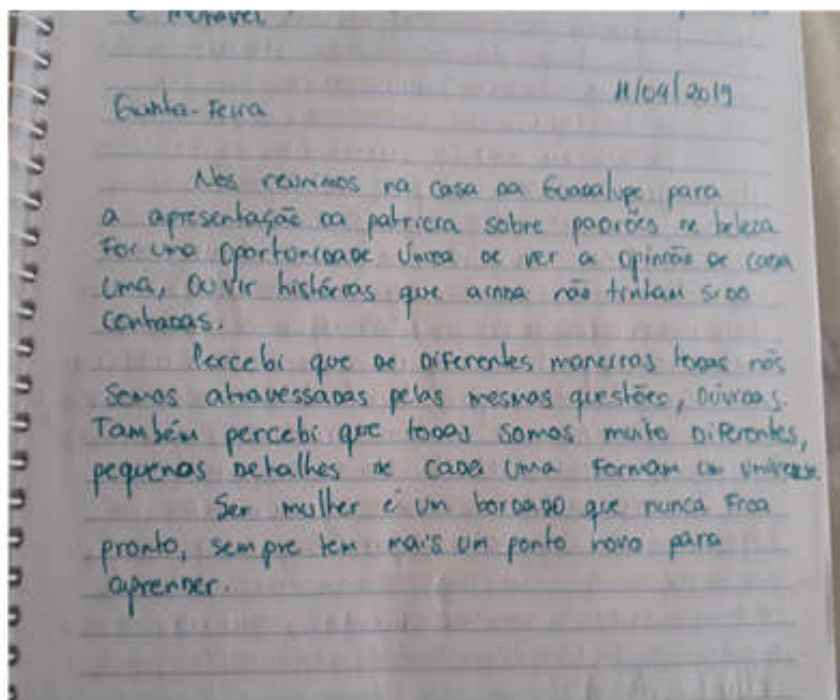 e
Quinta-Feira 11/04/2019
Nos reunimos na casa da Guadalupe para
a apresentação da patricia sobre padrões de beleza
Foi uma oportunidade única de ver a opinião de cada
uma, ouvir histórias que ainda não tinham sido
contadas.
Percebi que de diferentes maneiras todas nós
somos atravessadas pelas mesmas questões, dúvidas.
Também percebi que todas somos muito diferentes,
pequenos detalhes de cada uma formam um universo
Ser mulher é um bordado que nunca fica
pronto, sempre tem mais um ponto novo para
aprender.